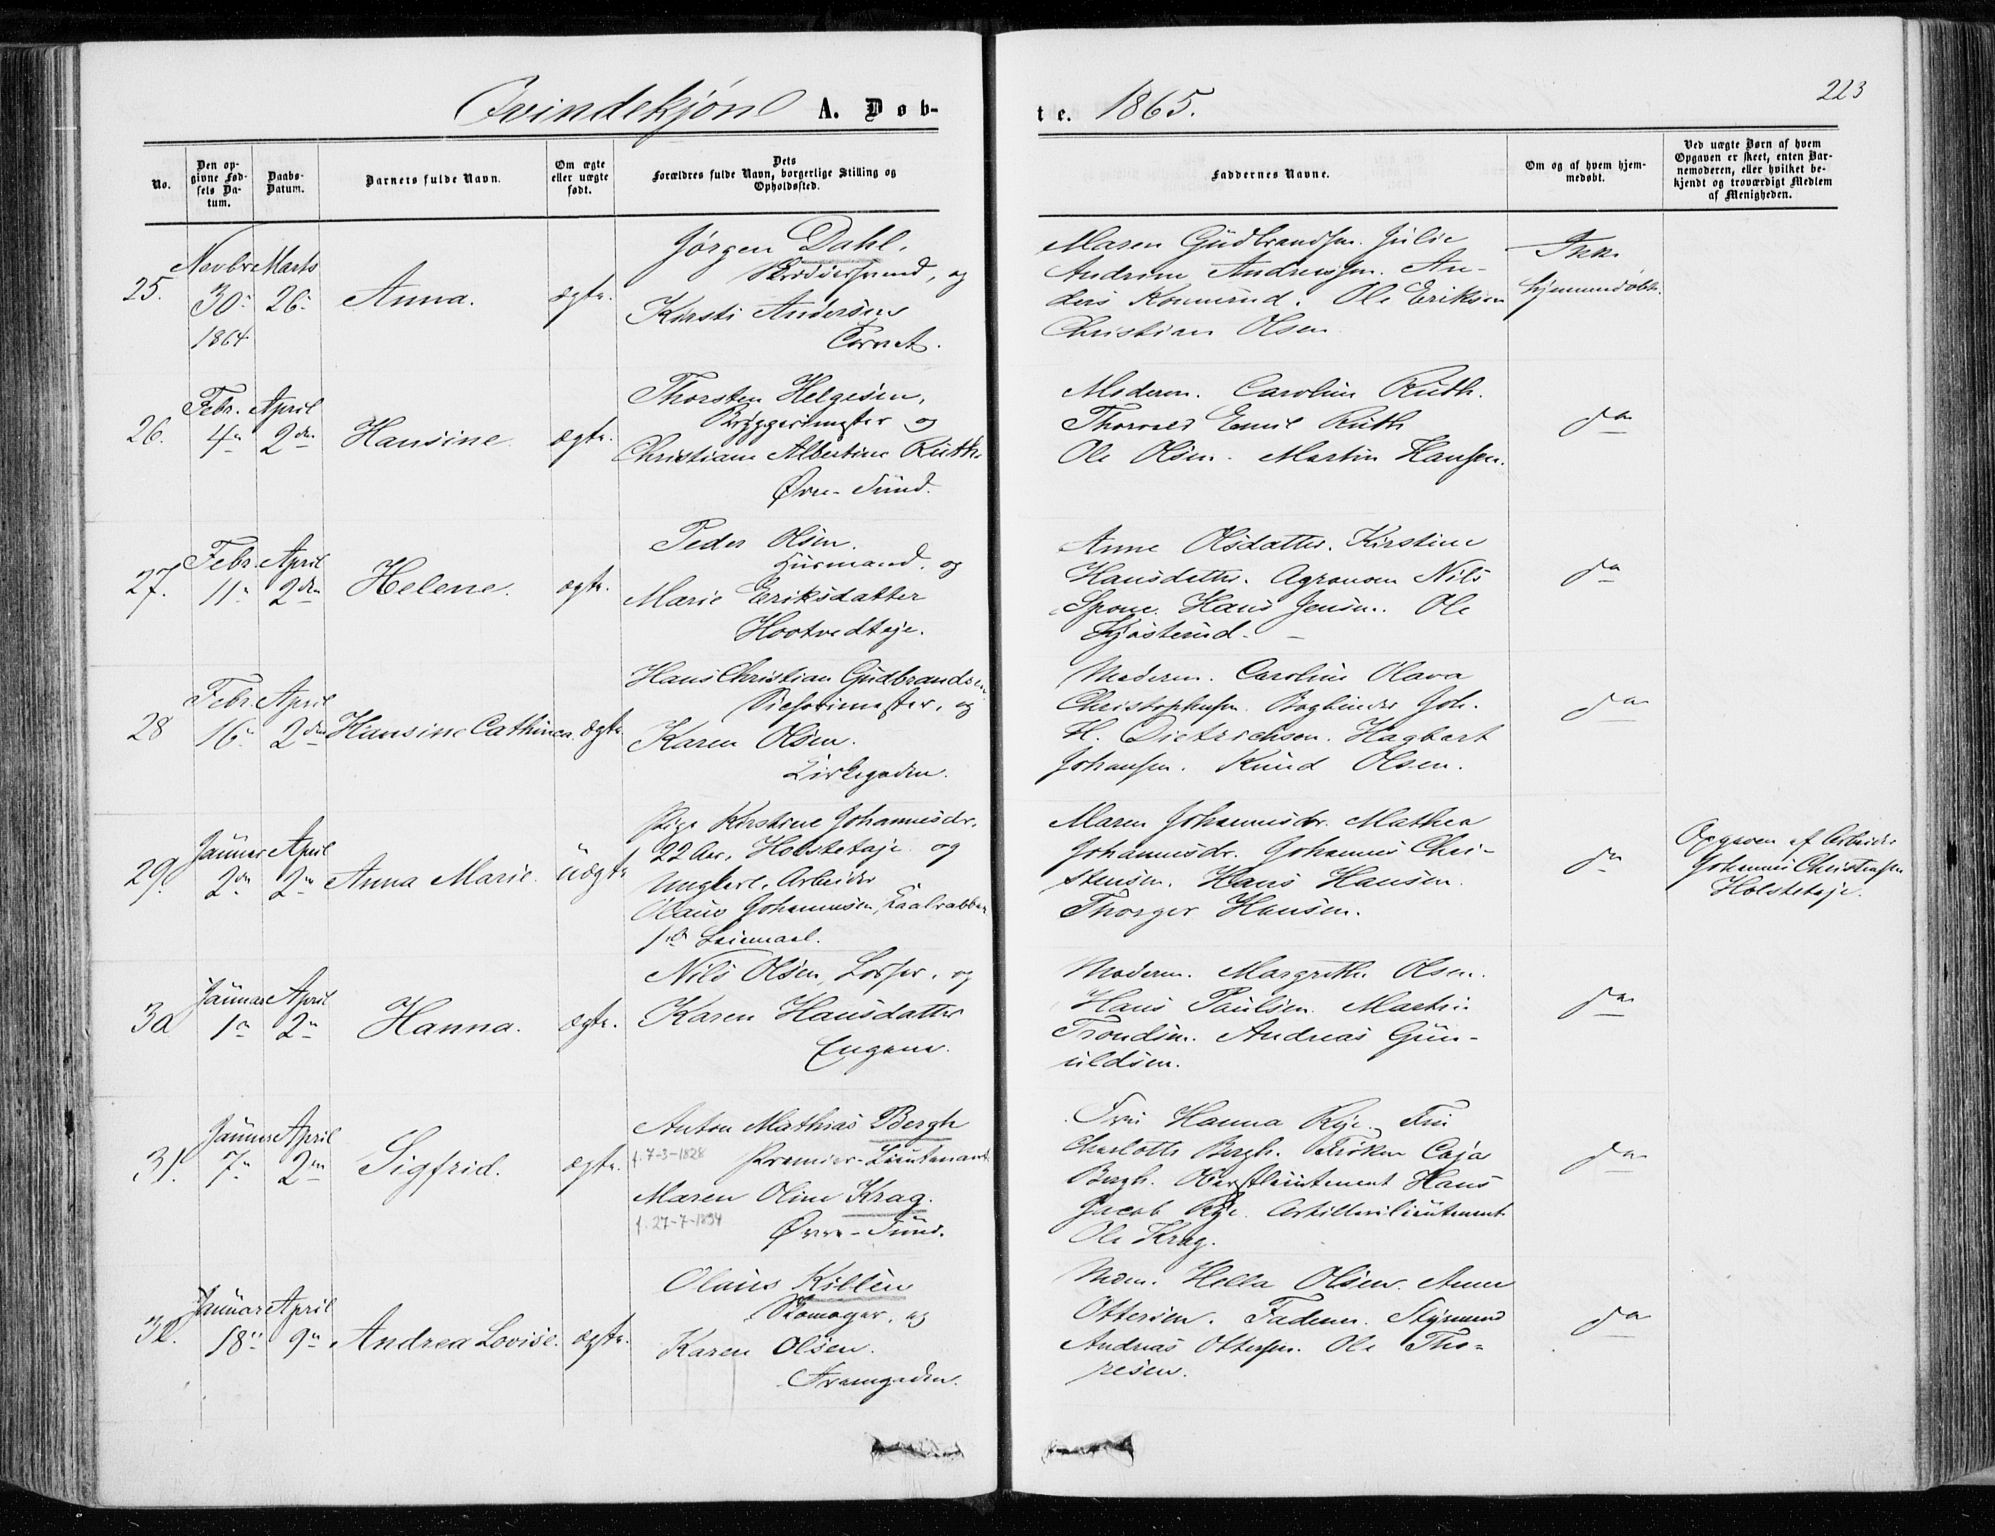 223
Qvindekjøn A. Døb-
te. 1865.
No.
Den op-
givne Fød-
sels Da-
tum.
Daabs-
Datum.
Barnets fulde Navn.
Om ægte
eller uægte
født.
Dets
Forældres fulde Navn, borgerlige Stilling og
Opholdssted.
Faddernes Navne.
Om og af hvem hjem-
medøbt.
Ved uægte Børn af hvem
Opgaven er skeet, enten Bar-
nemoderen, eller hvilket be-
kjendt og troværdigt Medlem
af Menigheden.
25.
Novbr
30
1864
Marts
26
Anna.
ægte.
Jørgen Dahl.
og
Kirsti Andersen
Maren Gudbrandsen. Julie
Andrine Andreassen. An-
ders Ole Eriksen
Christian Olsen
Ikke
hjemmedøbt.
26.
Febr.
4
April
2den
Hansine.
ægte.
Thorsten Helgesen,
Bryggerimester og
Christiane Albertine Ruth
Øvre-Sund.
Moderen. Caroline Ruth.
Thorvald Emil Ruth
Ole Olsen. Martin Hansen.
do
27.
Febr.
11
April
2den
Helene.
ægte.
Peder Olsen.
Husmand, og
Marie Eriksdatter
Hootvedteje.
Anne Olsdatter. Kirstine
Hansdatter. Agronom Nils
Spone. Hans Jensen. Ole
Kjøsterud.
do
28
Febr
16
April
2den
Hansine Cathinca.
ægte.
Hans Christian Gudbrandsen
og
Karen Olsen.
Kirkegaden.
Moderen. Caroline Olava
Christophersen. Bogbinder Joh.
H. Dietrichson. Hagbart
Johansen. Knud Olsen.
do
29.
Januar
2den
April
2den
Anna Marie.
Uægte
Pige Kirstine Johannesdr.
22 Aar, Holsteteje og
Ungkarl, Arbeider
Olaus Johannesen,
1ste Leiermaal.
Maren Johannesdr. Mathea
Johannesdr. Johannes Chri-
stensen. Hans Hansen.
Thorger Hansen.
do
Opgaven af Arbeider
Johannes Christensen
Holsteteje.
30
Januar
1
April
2
Hanna.
ægte.
Nils Olsen, Losser, og
Karen Hansdatter
Engene.
Moderen. Margrethe Olsen.
Hans Paulsen. Martin
Trondsen. Andreas Gun-
uldsen.
do
31.
Januar
7
April
2den
Sigfrid.
ægte.
Anton Mathias Bergh
f. 7-3-1828 Premier-Lieutenant
Maren Oline Krag.
f. 27-7-1834
Øvre-Sund.
Fru Hanna Rye. Fru
Charlotte Bergh. Frøken Caja
Bergh. Oberstlieutenant Hans
Jacob Rye. Artillerilieutenant
Ole Krag.
do
32.
Januar
18
April
9
Andrea Lovise.
ægte.
Olaus Killén
Skomager, og
Karen Olsen.
Tramgaden.
Mdm. Hella Olsen. Anne
Ottersen. Faderen. Styrmand
Andreas Ottersen. Ole Tho-
resen.
do